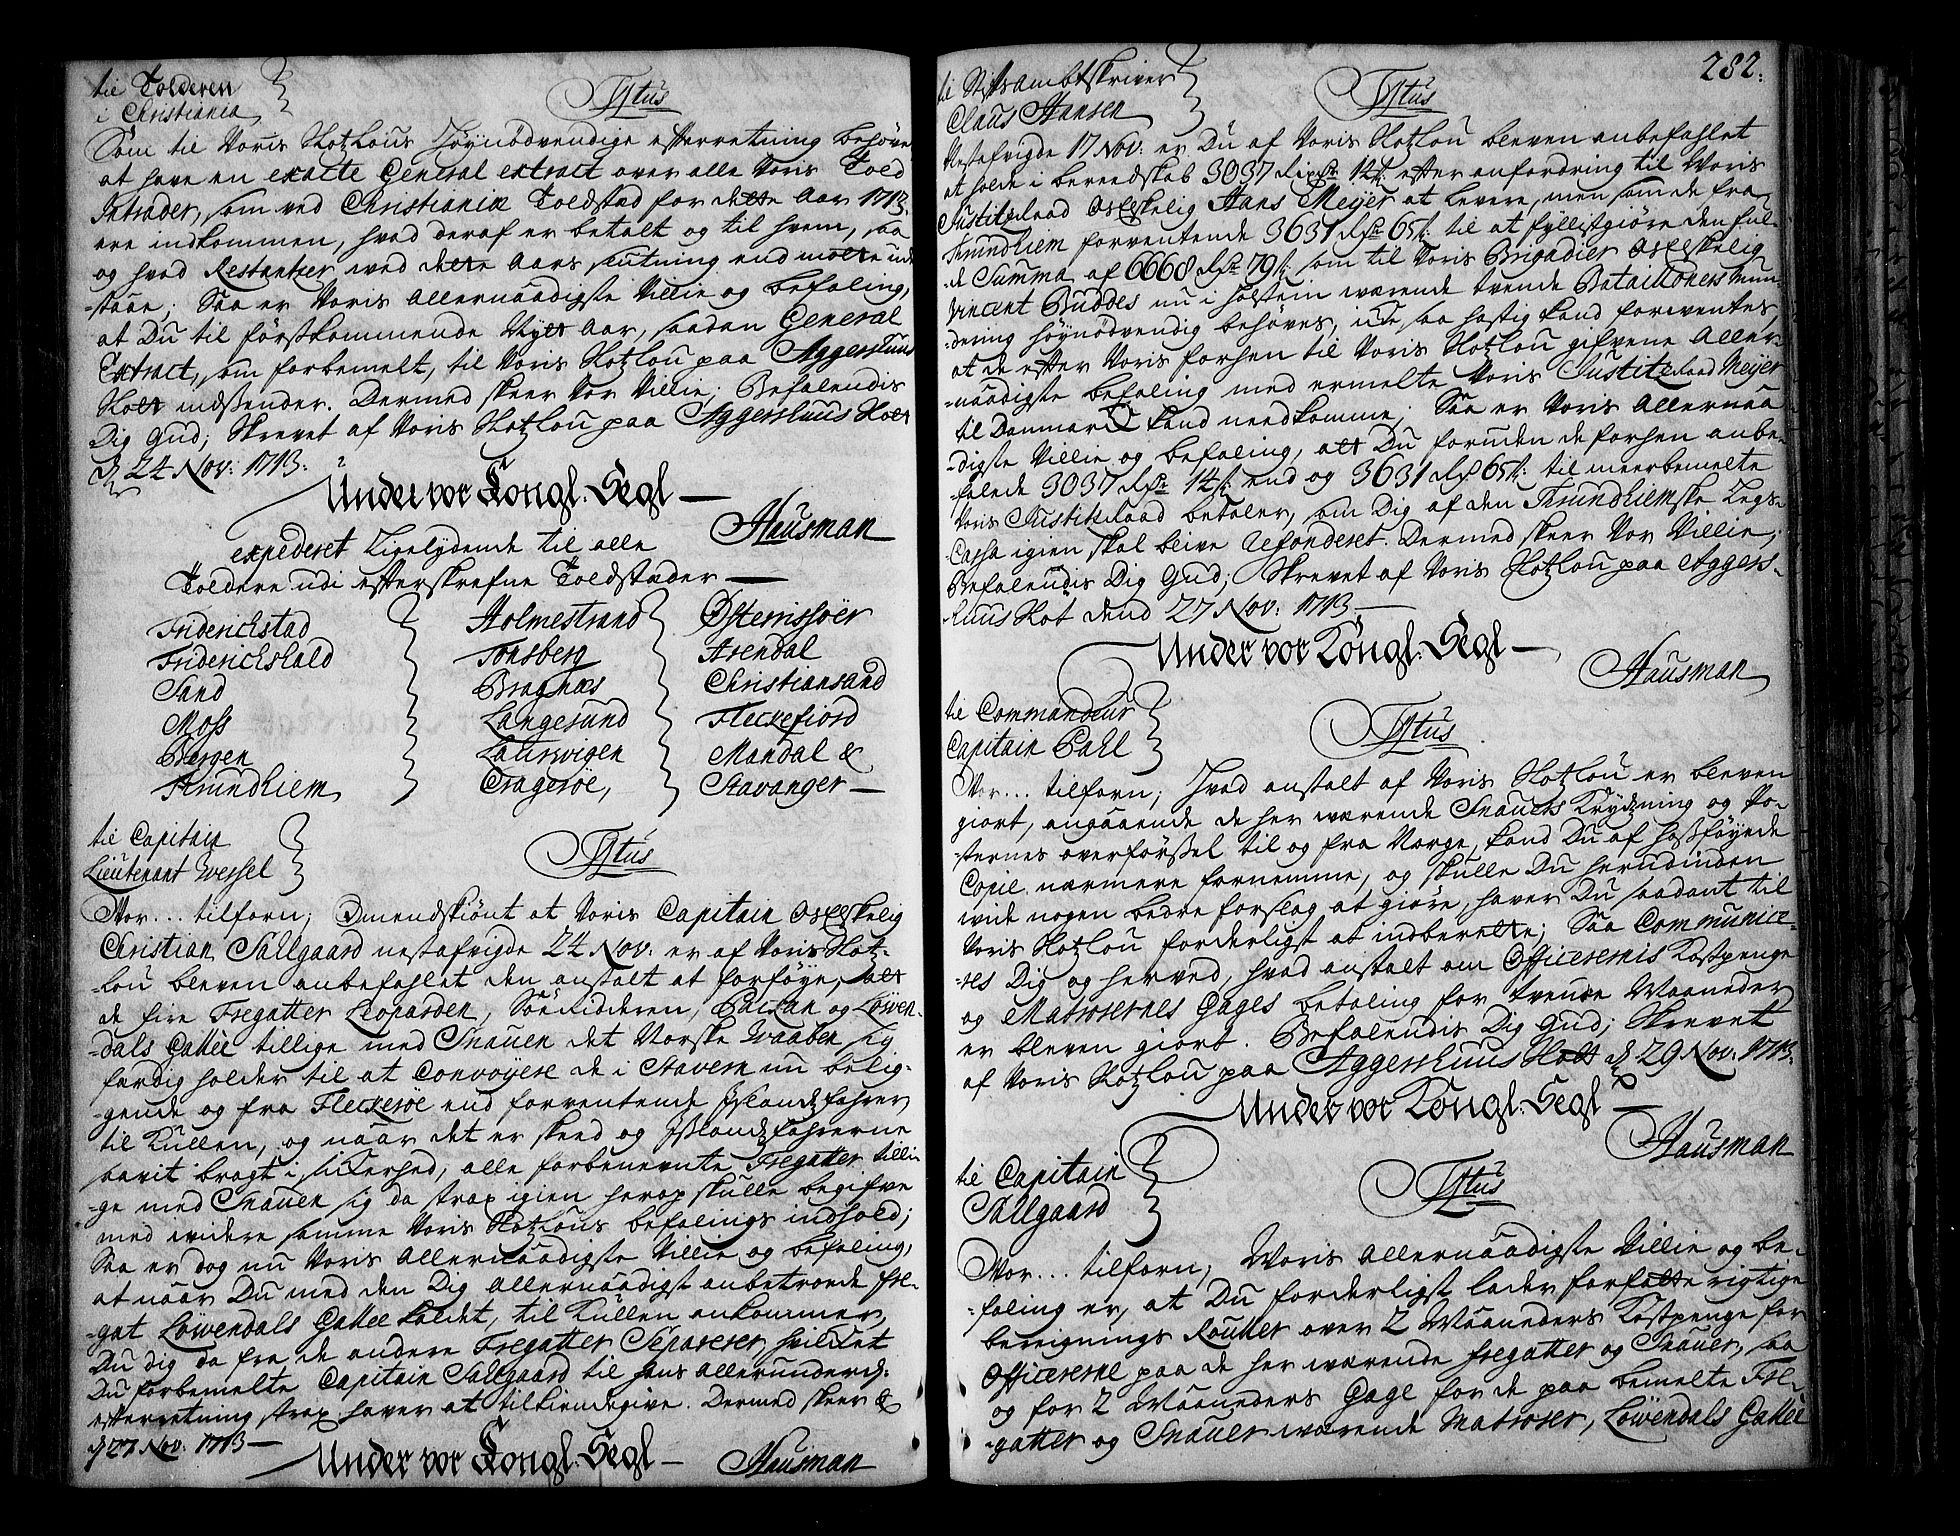 til Tolderen
i Christiania
Tytus
Som til Voris Slotzlous høynødvendige efterretning behøves
at have en exacte General extract over alle Voris Told
Intrader, som ved Christianiæ Toldstad for dette Aar 1713.
ere indkommen, hvad deraf er betalt og til hvem, saa
og hvad Restantzer, ved dette Aars slutning end motte ude
-staae; Saa er Voris Allernaadigste Villie og befaling,
at Du til førstkommende Nyet Aar, saadan General
Extract, som forbemelt, til Voris Slotzlou paa Aggershuus
Slott indsender. Dermed skeer Vor Villie; Befalendis
Dig Gud; Skrevet af Voris Slotzlou paa Aggershuus Slott
d. 24 Nov: 1713.
Under vor Kongl. Segl
Hausman
expederet Ligelydende til alle
Toldere udi efterskrefne Toldstæder
Friderichstad Holmestrand Østerriisöer
Friderichshald Tonsberg Arendal
Sand Bragnæs Christiansand
Moss Langesund Fleckefiord
Bergen Laurvigen Mandal &
Trundhiem Cragerøe, Stavanger
til Capitain
Lieutenant Wessel
Tytus
Vor... tilforn; Omendskiønt at Voris Capitain Os Elskelig
Christian Sallgaard nestafvigde 24 Nov: er af Voris Slotz-
-lou bleven anbefahlet den anstalt at forføye, att
de fire Fregatter Leoparden, Söe Ridderen, Pacian og Löwen-
-dals Gallee tillige med Snauen det Norske Waaben sig
færdig holder til at Convoyere de i Stavern nu belig-
-gende og fra Fleckerøe end forventende Islandsfahrer
til Kullen, og naar det er skeed og Islandsfahrerne
bavit bragt i sikerhed, alle forbenevnte Fregatter tilli-
-ge med Snauen sig da strax igien herop skulle begifve
med videre samme Voris Slotzlous befalings indhold;
Saa er dog nu Voris Allernaadigste Villie og befaling,
at naar Du med den Dig Allernaadigst anbetroede Fre-
-gat Löwendals Gallee kaldet, til Kullen ankommer,
Du dig da fra de andre Fregatter Separerer, hvilket
Du forbemelte Capitain Sallgaard til hans allerunderd.
efterretning strax haver at tilkiendegive. Dermed skeer &
d. 27 Nov: 1713
Under vor Kongl. Segl
Hausman
282.
til Stiftsambtskriver
Claus Hansen
Tytus
Nestafvigde 17 Nov: er Du af Voris Slotzlou bleven anbefahlet
at holde i bereedskab 3037 Rixdr. 14 s. efter anfordring til Voris
Justitz Raad Os Elskelig Hans Meyer at levere, men som de fra
Trundhiem forventende 3631 Rdr. 65 s. til at fyllistgiøre den ful-
-de Summa af 6668 Rdr. 79 s. som til Voris Brigadier Os Elskelig
Vincent Buddes nu i Holstein wærende tvende Batailloners Mun-
-dering høynødvendig behøves, icke saa hastig kand forventes
at de efter Voris forhen til Voris Slotzlou gifvene Aller-
-naadigste befaling med ermelte Voris Justitz Raad Meyer
til Danmarck kand needkomme; Saa er Voris Allernaa-
-digste Villie og befaling, att Du foruden de forhen anbe-
-falede 3037 Rdr. 14 s. end og 3631 Rd. 65 s. til meerbemelte
Voris Justitz Raad betaler, som Dig af den Trundhiemske Zegs
Cassa igien skal blive Refonderet. Dermed skeer Vor Villie;
Befalendis Dig Gud; Skrevet af Voris Slotzlou paa Aggers-
-huus Slot dend 27 Nov: 1713
Under vor Kongl. Segl
Hausman
til Commandeur
Capitain Pahl
Tytus
Vor... tilforn; Hvad anstalt af Voris Slotzlou er bleven
giort, angaaende de her wærende Snauers Krydzning og Po-
-sternes overførssel til og fra Norge, kand Du af hossføyede
Copie nærmere fornemme, og skulle Du herudinden
wide nogen bedre forslag at giøre, haver Du saadant til
Voris Slotzlou forderligst at indberette; Saa Communice-
-res Dig og herved, hvad anstalt om Officerernis Kostpenge
og Matrosernes Gages betaling for tvende Maaneder
er bleven giort. Befalendis Dig Gud; Skrevet
af Voris Slotzlou paa Aggershuus Slott d. 29 Nov: 1713.
Under vor Kongl. Segl
Hausman
til Capitain
Sallgaard
Tytus
Vor... tilforn; Woris Allernaadigste Villie og be-
-faling er, at Du forderligst lader forfatte rigtige
beregnings Ruller over 2 Maaneders Kostpenge for
Officererne paa de her wærende Fregatter og Snauer, saa
og for 2 Maaneders Gage for de paa bemelte Fre-
-gatter og Snauer wærende Matroser, Löwendals Gallee